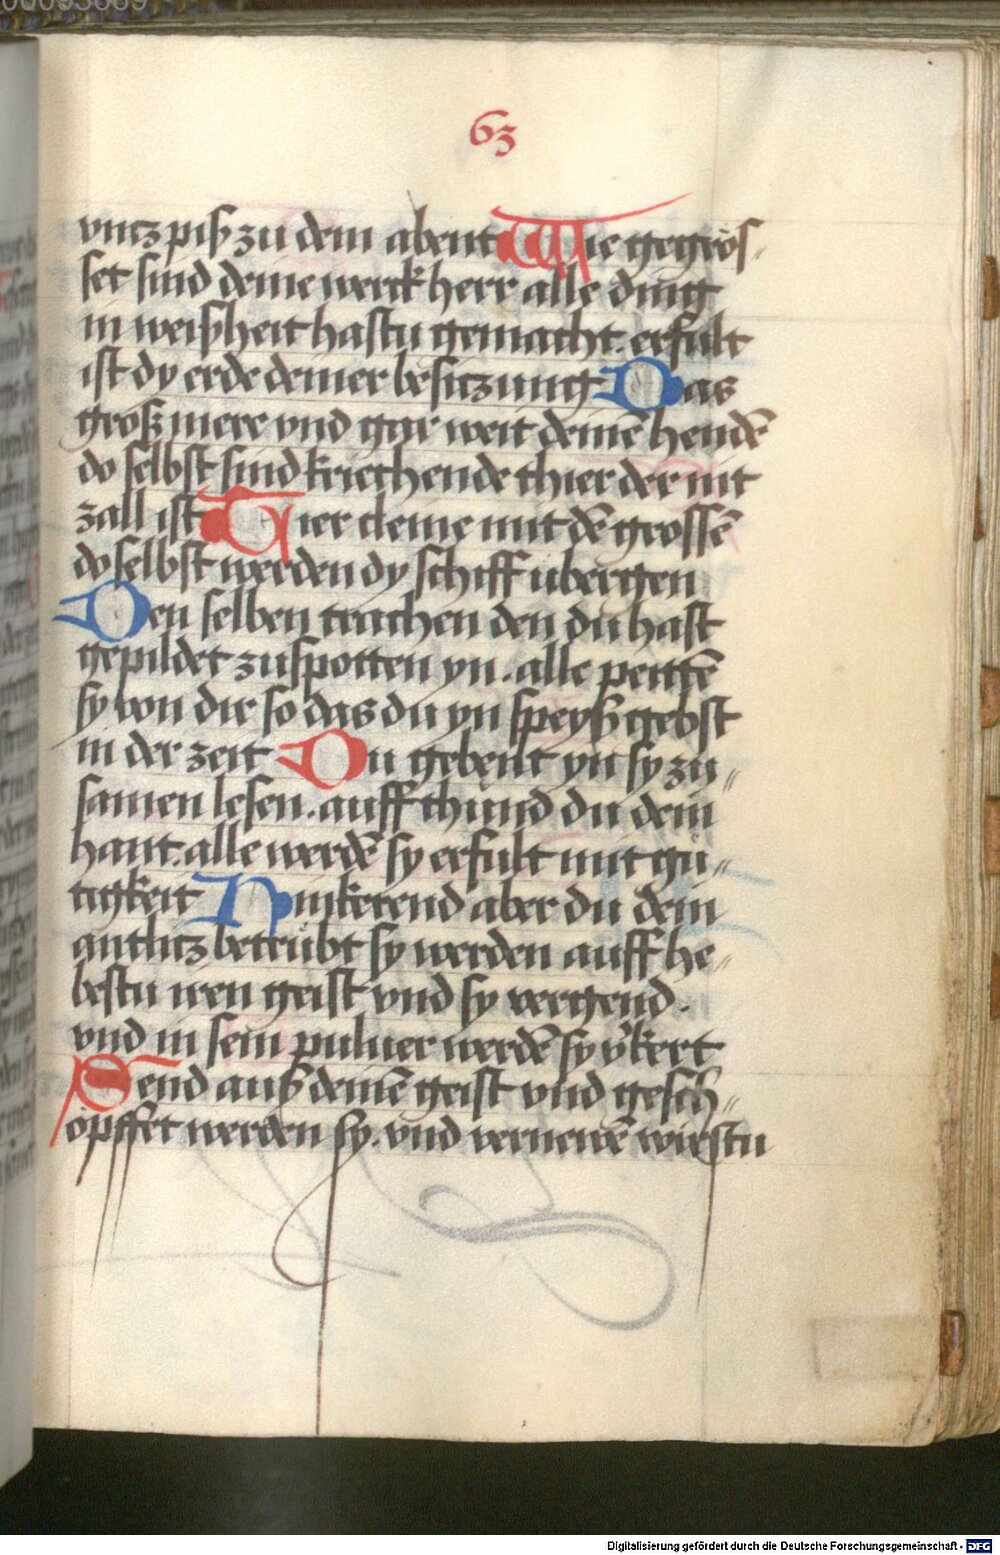 63
vntz piß zu dem abent Wie gegrös-
set sind deine werck herr alle ding
in weißheit hastu gemacht. erfult
ist dy erde deiner besitzung Das
groß mere vnd gar weit deinē hendē
do selbst sind kriechende thier der nit
zall ist Tier cleine mit dē grossē
do selbst werden dy schiff ubergen
Den selben trachen den du hast
gepildet zuspotten yn. alle peittē
sy von dir so das du yn speyß gebst
in der zeit Du gebent yn sy zu-
samen lesen. auff thund du dein
hant. alle werdē sy erfult mit gü-
tigkeit Hinkerend aber du dein
antlitz betrübt sy werden auff he-
bestu iren geist vnd sy vergend.
vnd in sein puluer werdē sy v̄kert
Send auß deinē geist vnd gesch-
öpffet werden sy. vnd vernewē wirstu
Digitalisierung gefördert durch die Deutsche Forschungsgemeinschaft - DFG